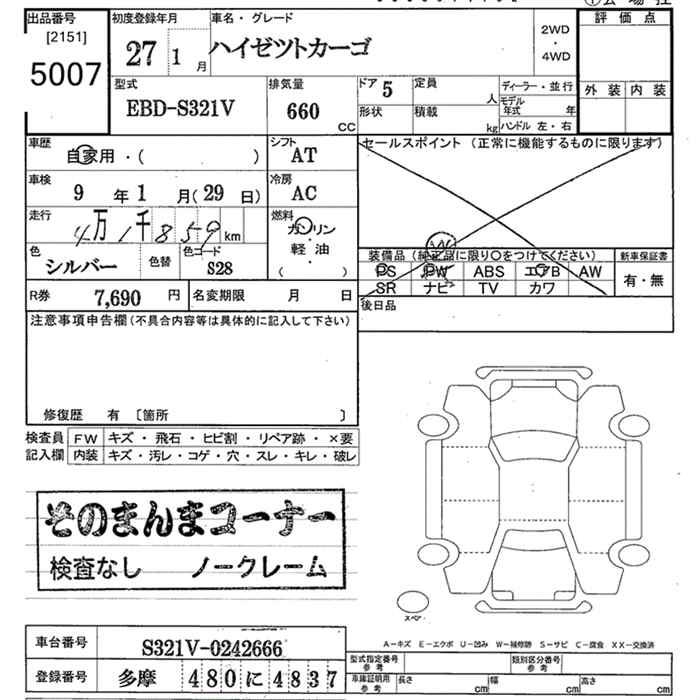 出品番号 初度登録年月 車名・グレード 評価点
[2151]
5007 27 1月 ハイゼットカーゴ 2WD・4WD
外装 内装
型式 排気量 ドア 5 定員 人 ディーラー・並行
EBD-S321V 660 CC 形状 積載 kg モデル年式 年
ハンドル 左・右
車歴 自家用・( ) シフト AT セールスポイント (正常に機能するものに限ります)
車検 9年1月(29日) 冷房 AC
走行 4万1千859km 燃料 ガソリン・軽油・( )
色 シルバー 色替 色コード S28
装備品 (純正品に限り○をつけてください) 新車保証書
PS PW ABS エアB AW 有・無
SR ナビ TV カワ
R券 7,690円 名変期限 月 日 後日品
注意事項申告欄(不具合内容等は具体的に記入して下さい)
修復歴 有 〔箇所 〕
検査員 FW キズ・飛石・ヒビ割・リペア跡・×要
記入欄 内装 キズ・汚レ・コゲ・穴・スレ・キレ・破レ
そのまんまコーナー
検査なし ノークレーム
スペア
A-キズ E-エクボ U-凹み W-補修跡 S-サビ C-腐食 XX-交換済
車台番号 S321V-0242666
登録番号 多摩 480 に 4837
型式指定番号 参考 類別区分番号 参考
車庫証明用 参考 長さ cm 幅 cm 高さ cm